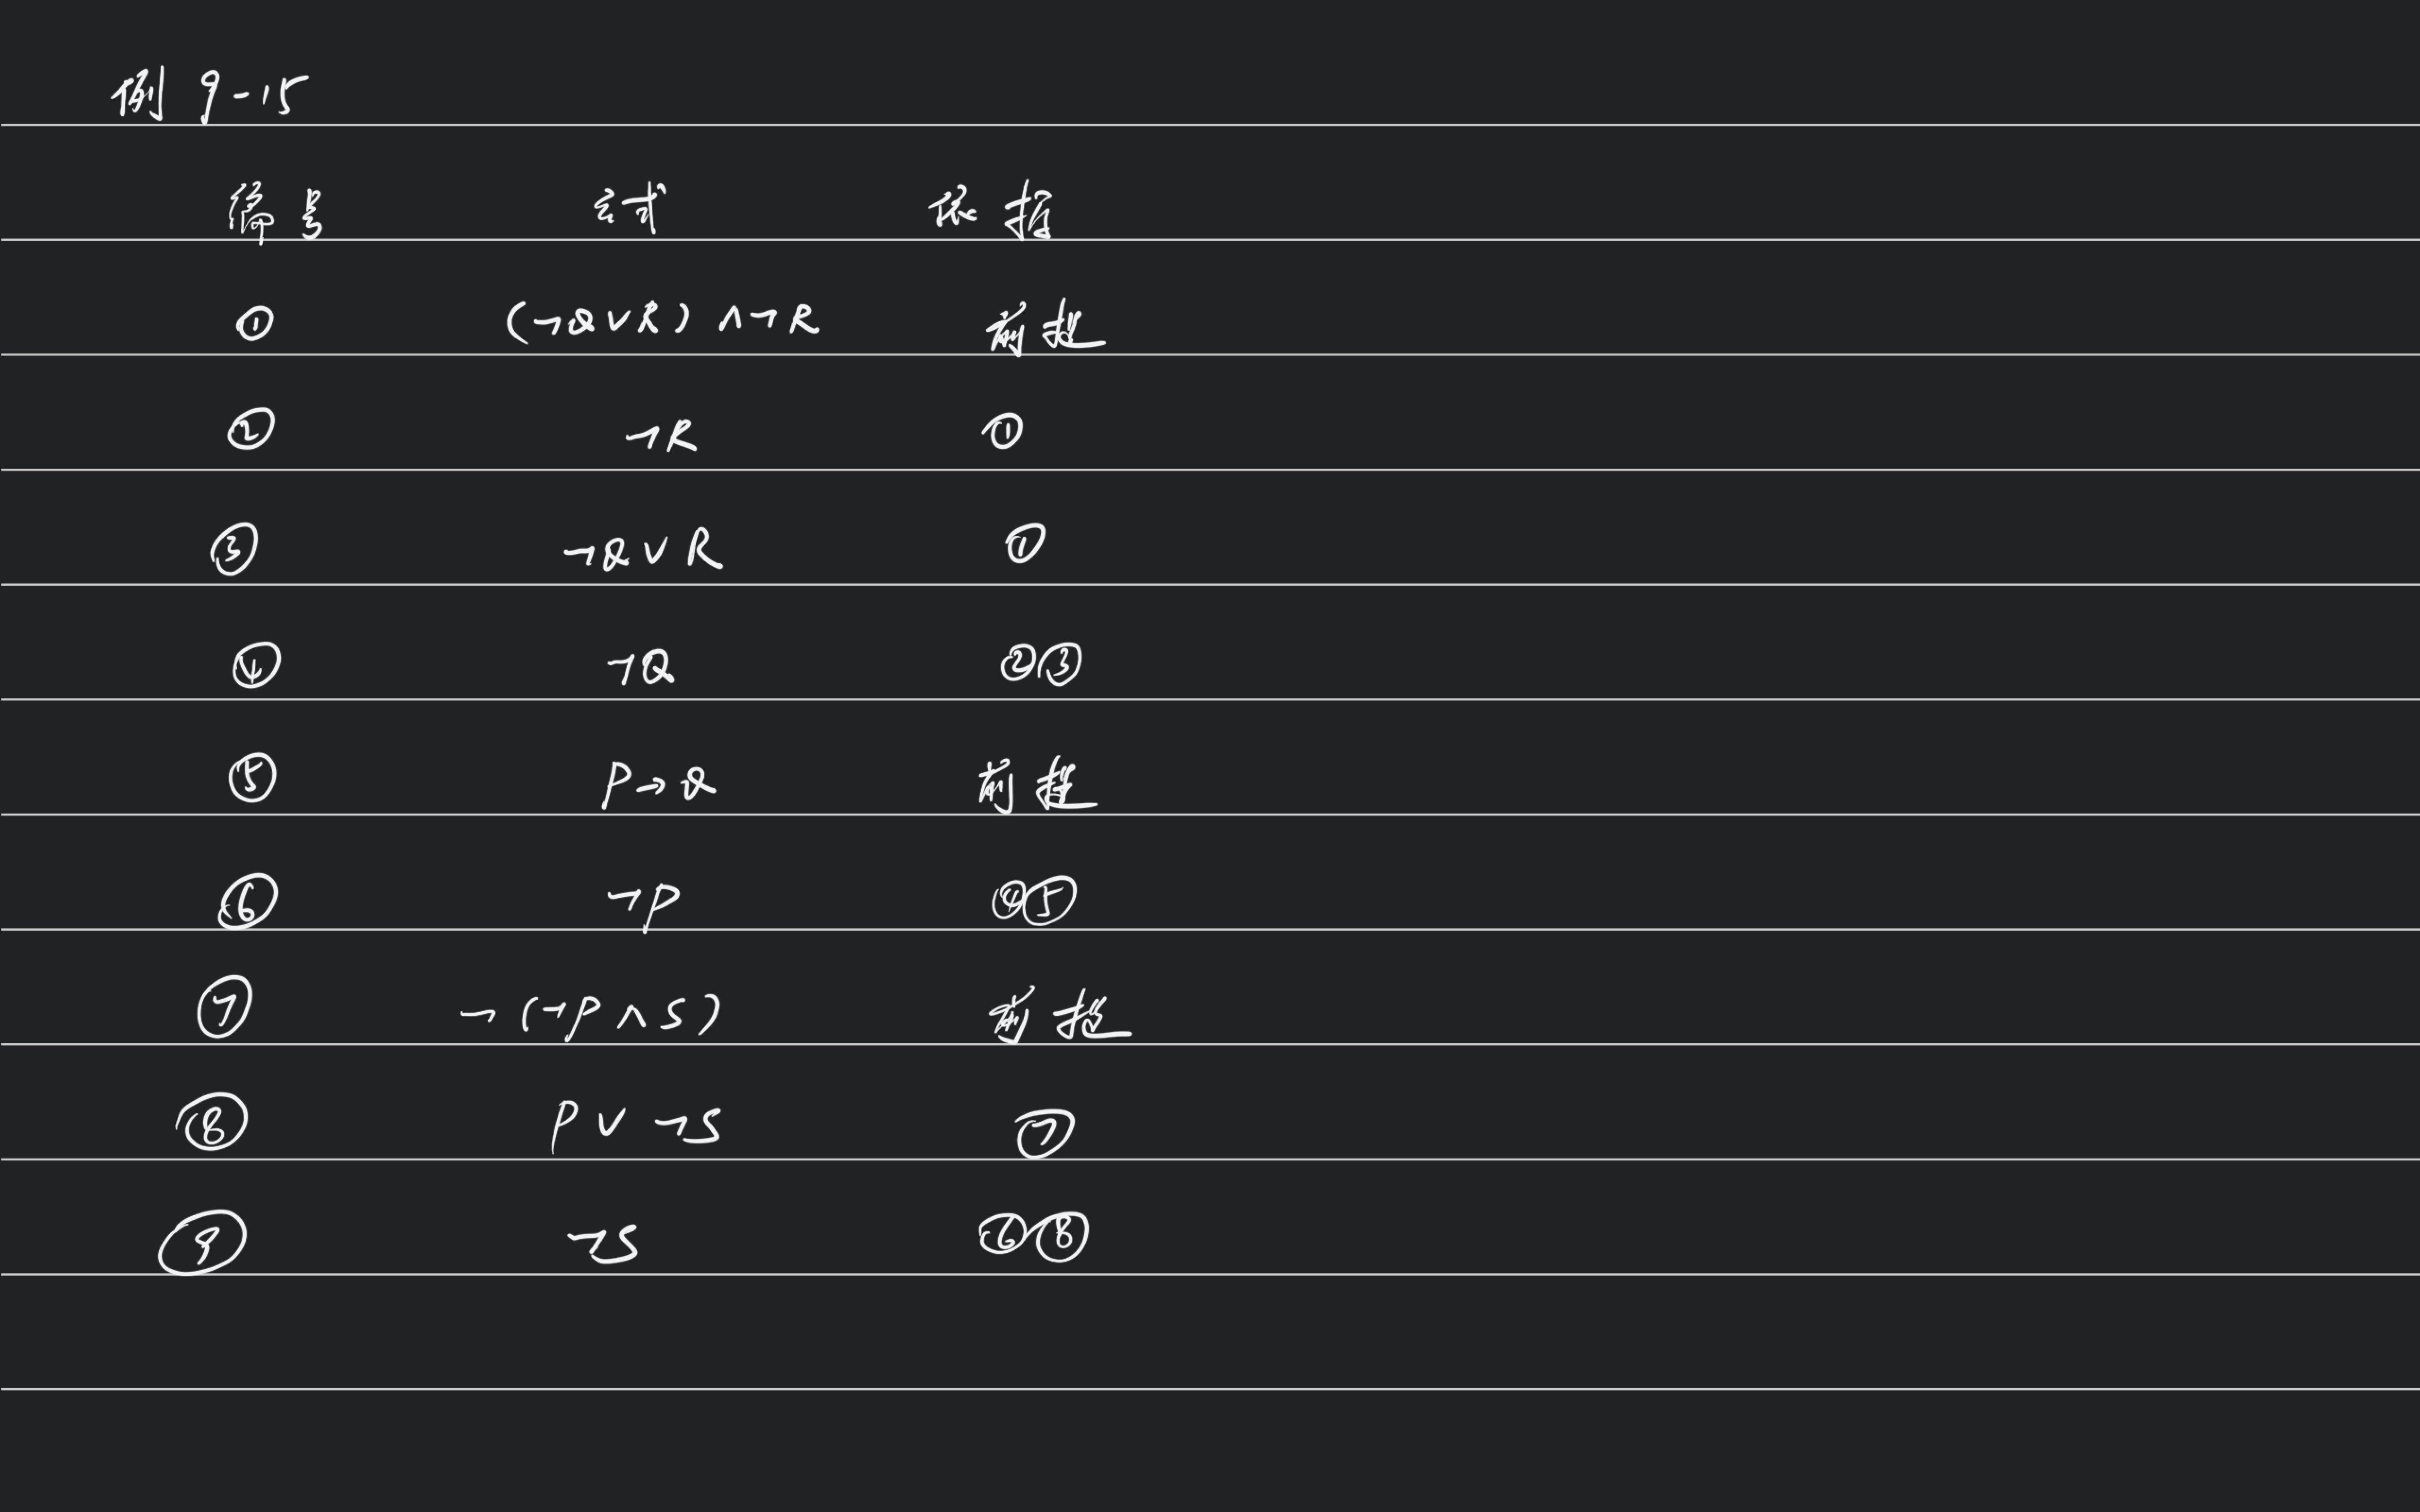 例 9-15
编号 公式 依据
① (¬Q∨R)∧¬R 前提
② ¬R ①
③ ¬Q∨R ①
④ ¬Q ②③
⑤ P→Q 前提
⑥ ¬P ④⑤
⑦ ¬(¬P∧S) 前提
⑧ P∨¬S ⑦
⑨ ¬S ⑥⑧